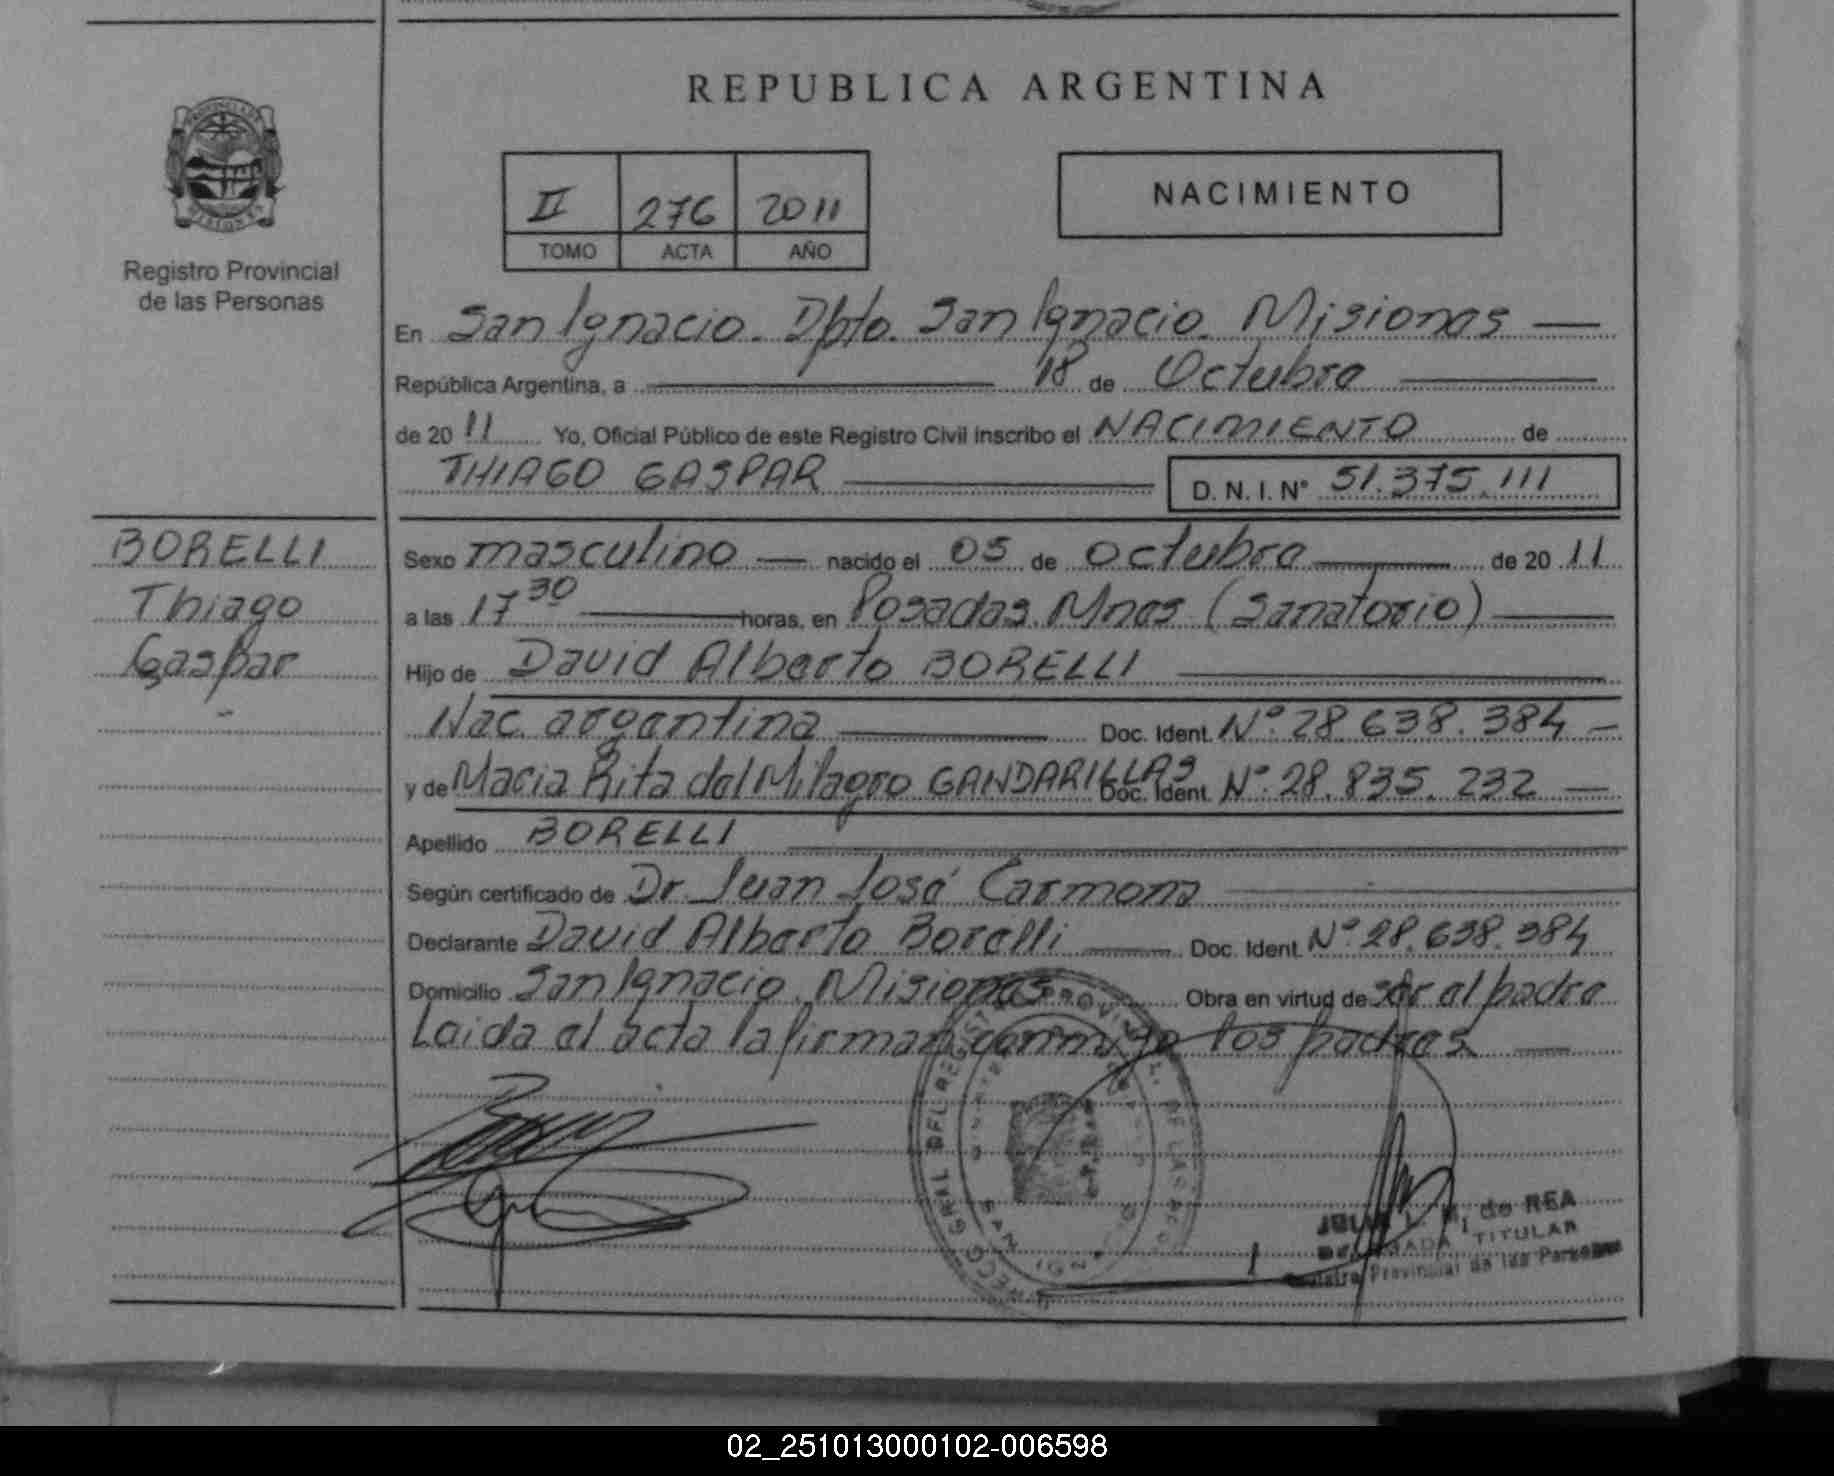 REPUBLICA ARGENTINA
PROVINCIA DE
MISIONES
Registro Provincial
de las Personas
II 276 2011
TOMO ACTA AÑO
NACIMIENTO
En San Ignacio. Dpto. San Ignacio. Misiones
República Argentina, a 18 de Octubre
de 20 11 Yo, Oficial Público de este Registro Civil inscribo el NACIMIENTO de
THIAGO GASPAR D. N. I. N° 51.375.111
BORELLI
Thiago
Gaspar
Sexo masculino nacido el 05 de octubre de 20 11
a las 17 30 horas, en Posadas. Mnes (Sanatorio)
Hijo de David Alberto BORELLI
Nac. argentina Doc. Ident. N°. 28.638.384
y de María Rita del Milagro GANDARILLAS Doc. Ident. N°. 28.835.232
Apellido BORELLI
Según certificado de Dr. Juan José Carmona
Declarante David Alberto Borelli Doc. Ident. N°. 28.638.384
Domicilio San Ignacio. Misiones Obra en virtud de ser el padre
Leida el acta la firman conmigo los padres.
DIRECC. GRAL. DEL REGISTRO PROVINCIAL DE LAS
SAN
de REA
TITULAR
Registro Provincial de las Personas
02_251013000102-006598